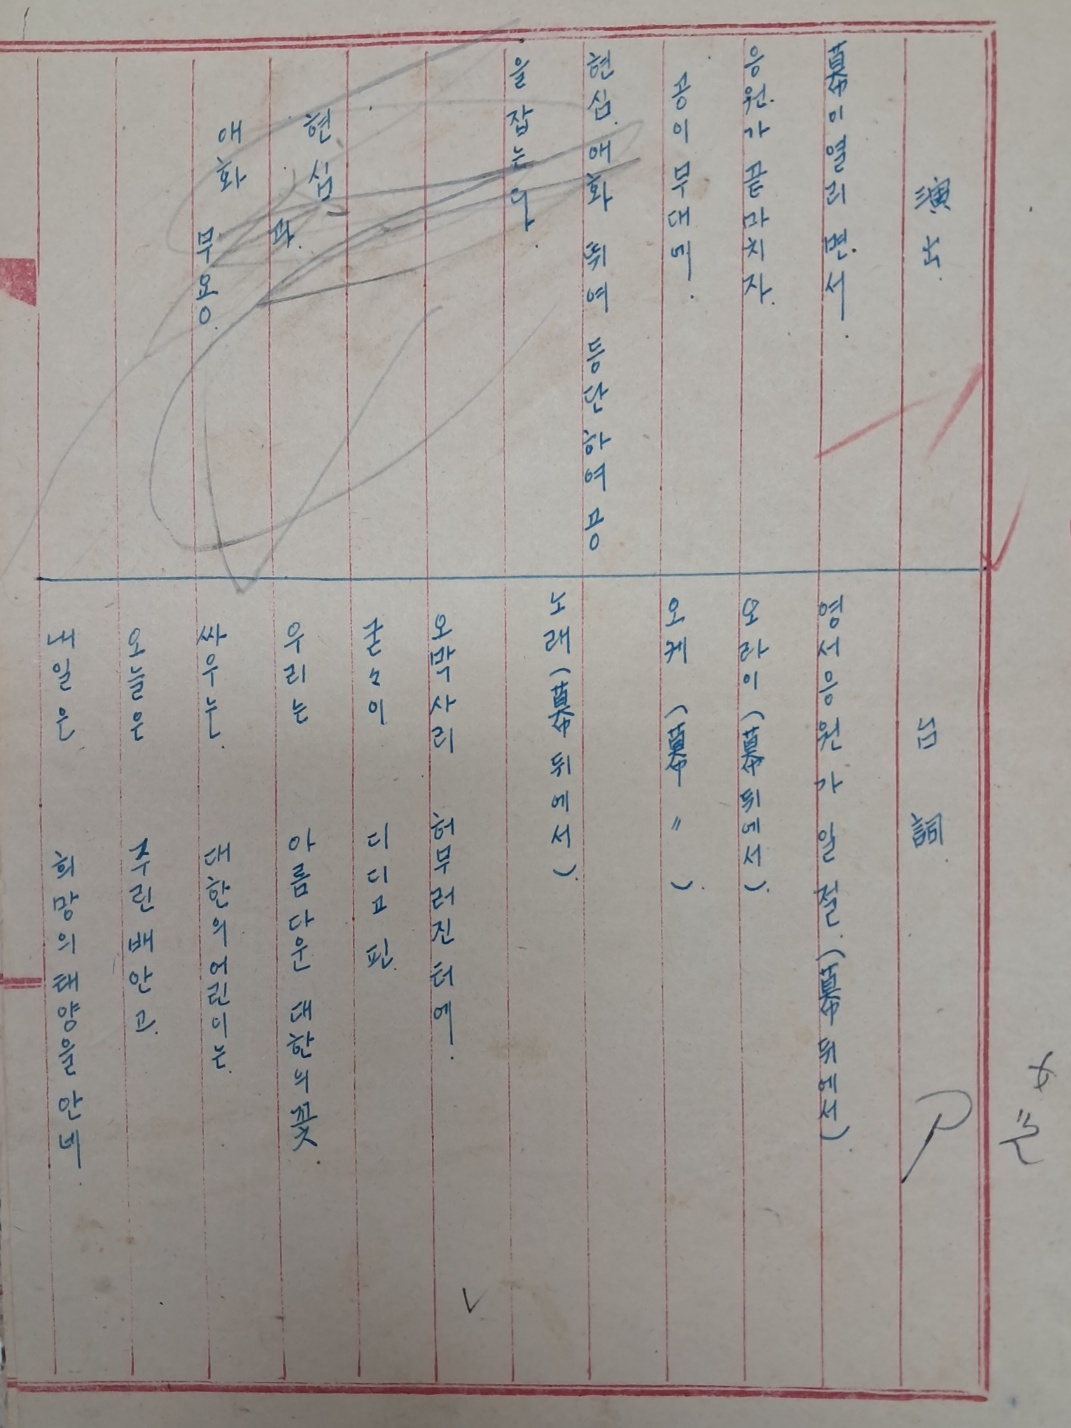 演出
幕이열리면서.
응원가 끝마치자.
공이 무대뒤.
현심.애화 뛰여 등단하여 공
을 잡는다.
현심과.
애화 무용.
台詞
형서응원가 일절.(幕뒤에서)
오라이(幕뒤에서).
오케 (幕〃).
노래(幕뒤에서).
오막사리 허무러진 터에.
군々이 디디고 핀.
우리는 아름다운 대한의꽃.
싸우는. 대한의어린이는.
오늘은 주린배안고.
내일은. 희망의태양을안네